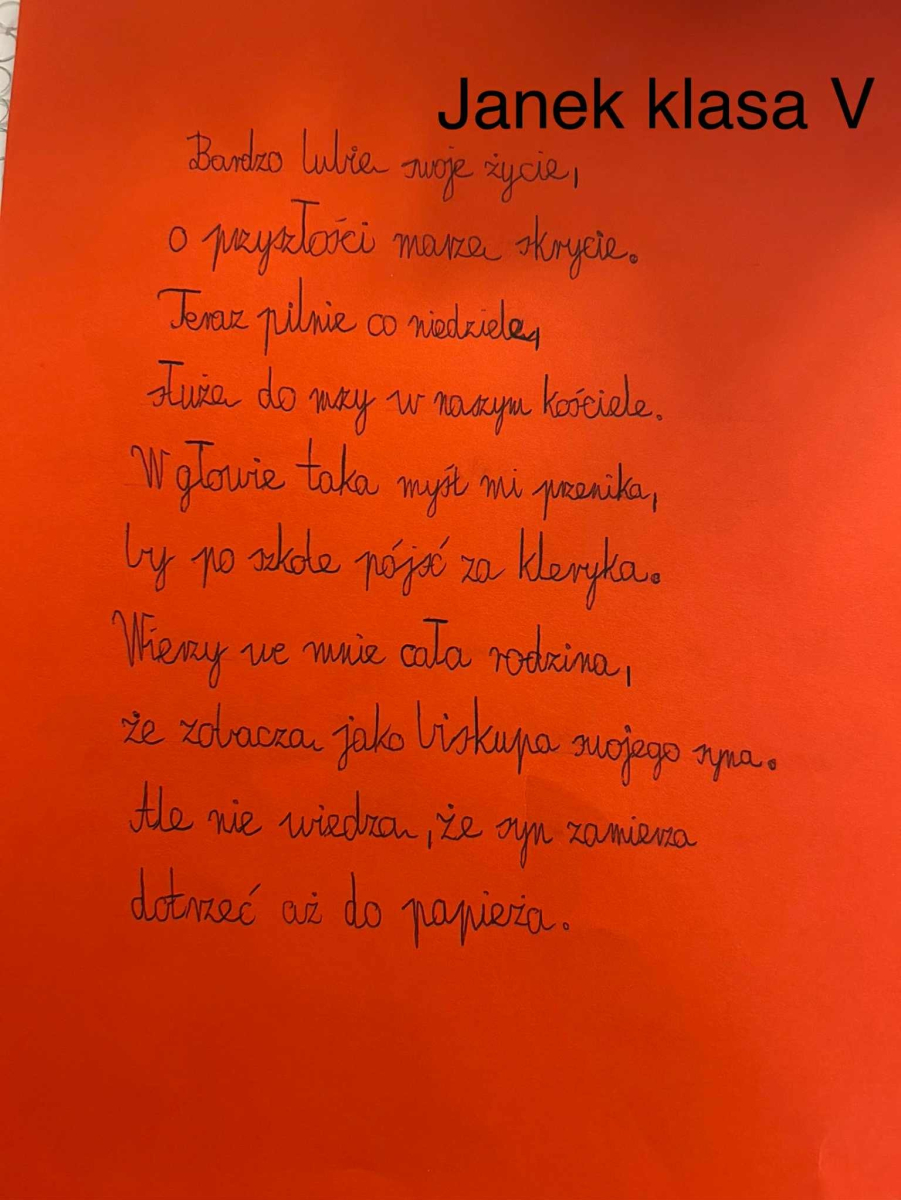 Janek klasa V
Bardzo lubię swoje życie,
o przyszłości marzę skrycie.
Teraz pilnie co niedzielę,
służę do mszy w naszym kościele.
W głowie taka myśl mi przenika,
by po szkole pójść za kleryka.
Wierzy we mnie cała rodzina,
że zobaczą jako biskupa swojego syna.
Ale nie wiedzą, że syn zamierza
dotrzeć aż do papieża.